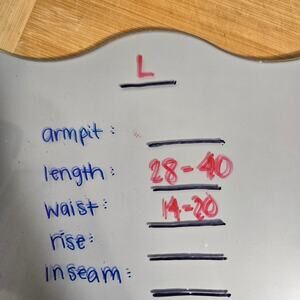 L
armpit:
length: 28-40
waist: 14-20
rise:
inseam: